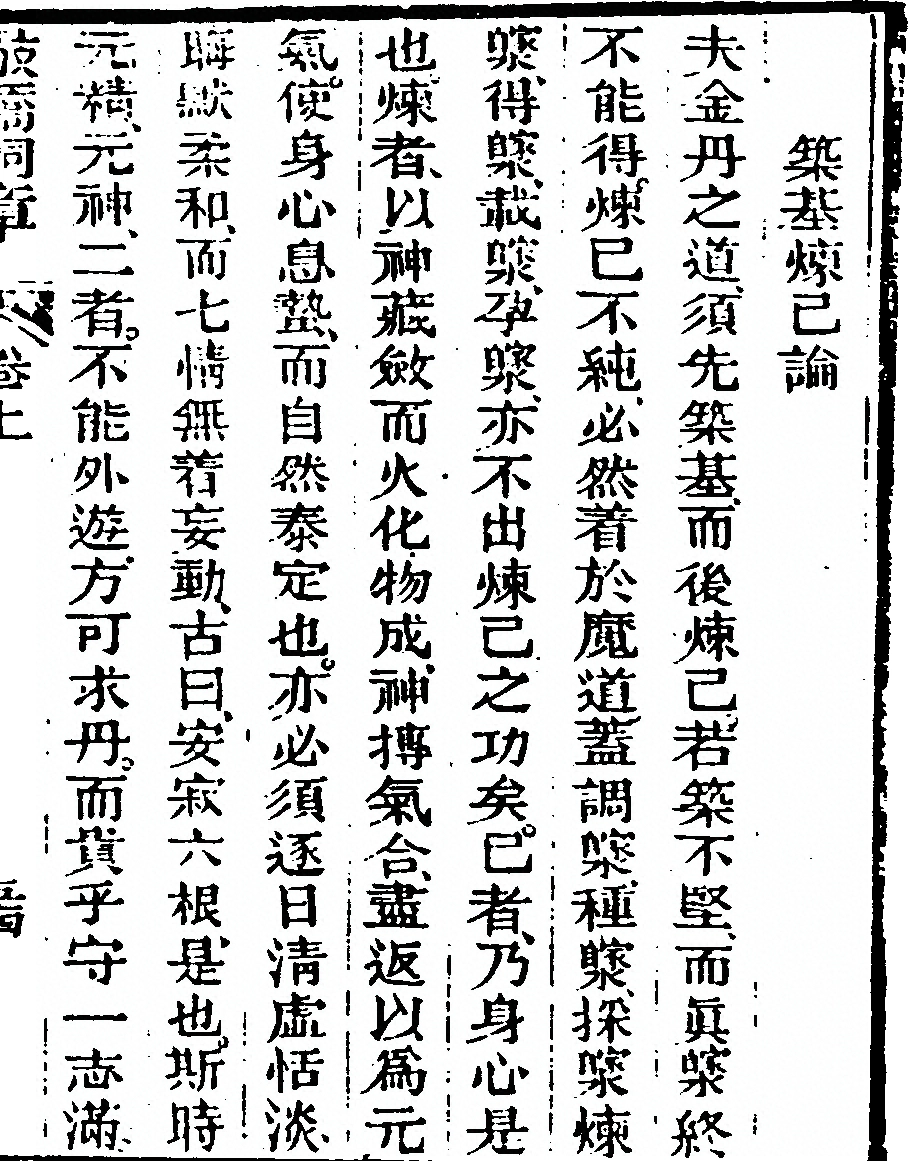 築基煉己論
夫金丹之道、須先築基、而後煉己。若築不堅、而眞終
不能得。煉已不純、必然着於魔道。蓋調、種、探煉
、得、載、孕、亦不出煉己之功矣。已者、乃身心是
也。煉者、以神藏斂而火化物成神、摶氣合、盡返以爲元
氣使。身心息蟄、而自然泰定也。亦必須逐日清虛恬淡、
晦默柔和、而七情無着妄動、古曰、安寂六根是也。斯時
元精、元神、二者。不能外遊、方可求丹。而貴乎守一志滿、
洞章 卷上